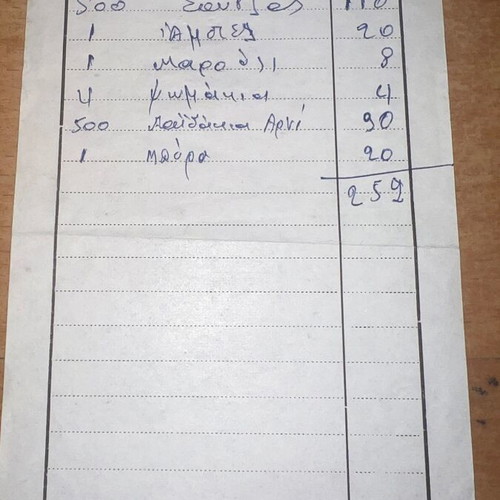 500 Σουτζος 110
1 ΊΑμπελ 20
1 Μαρούλι 8
4 ψωμάκια 4
500 Παϊδάκια Αρνί 90
1 μπύρα 20
252